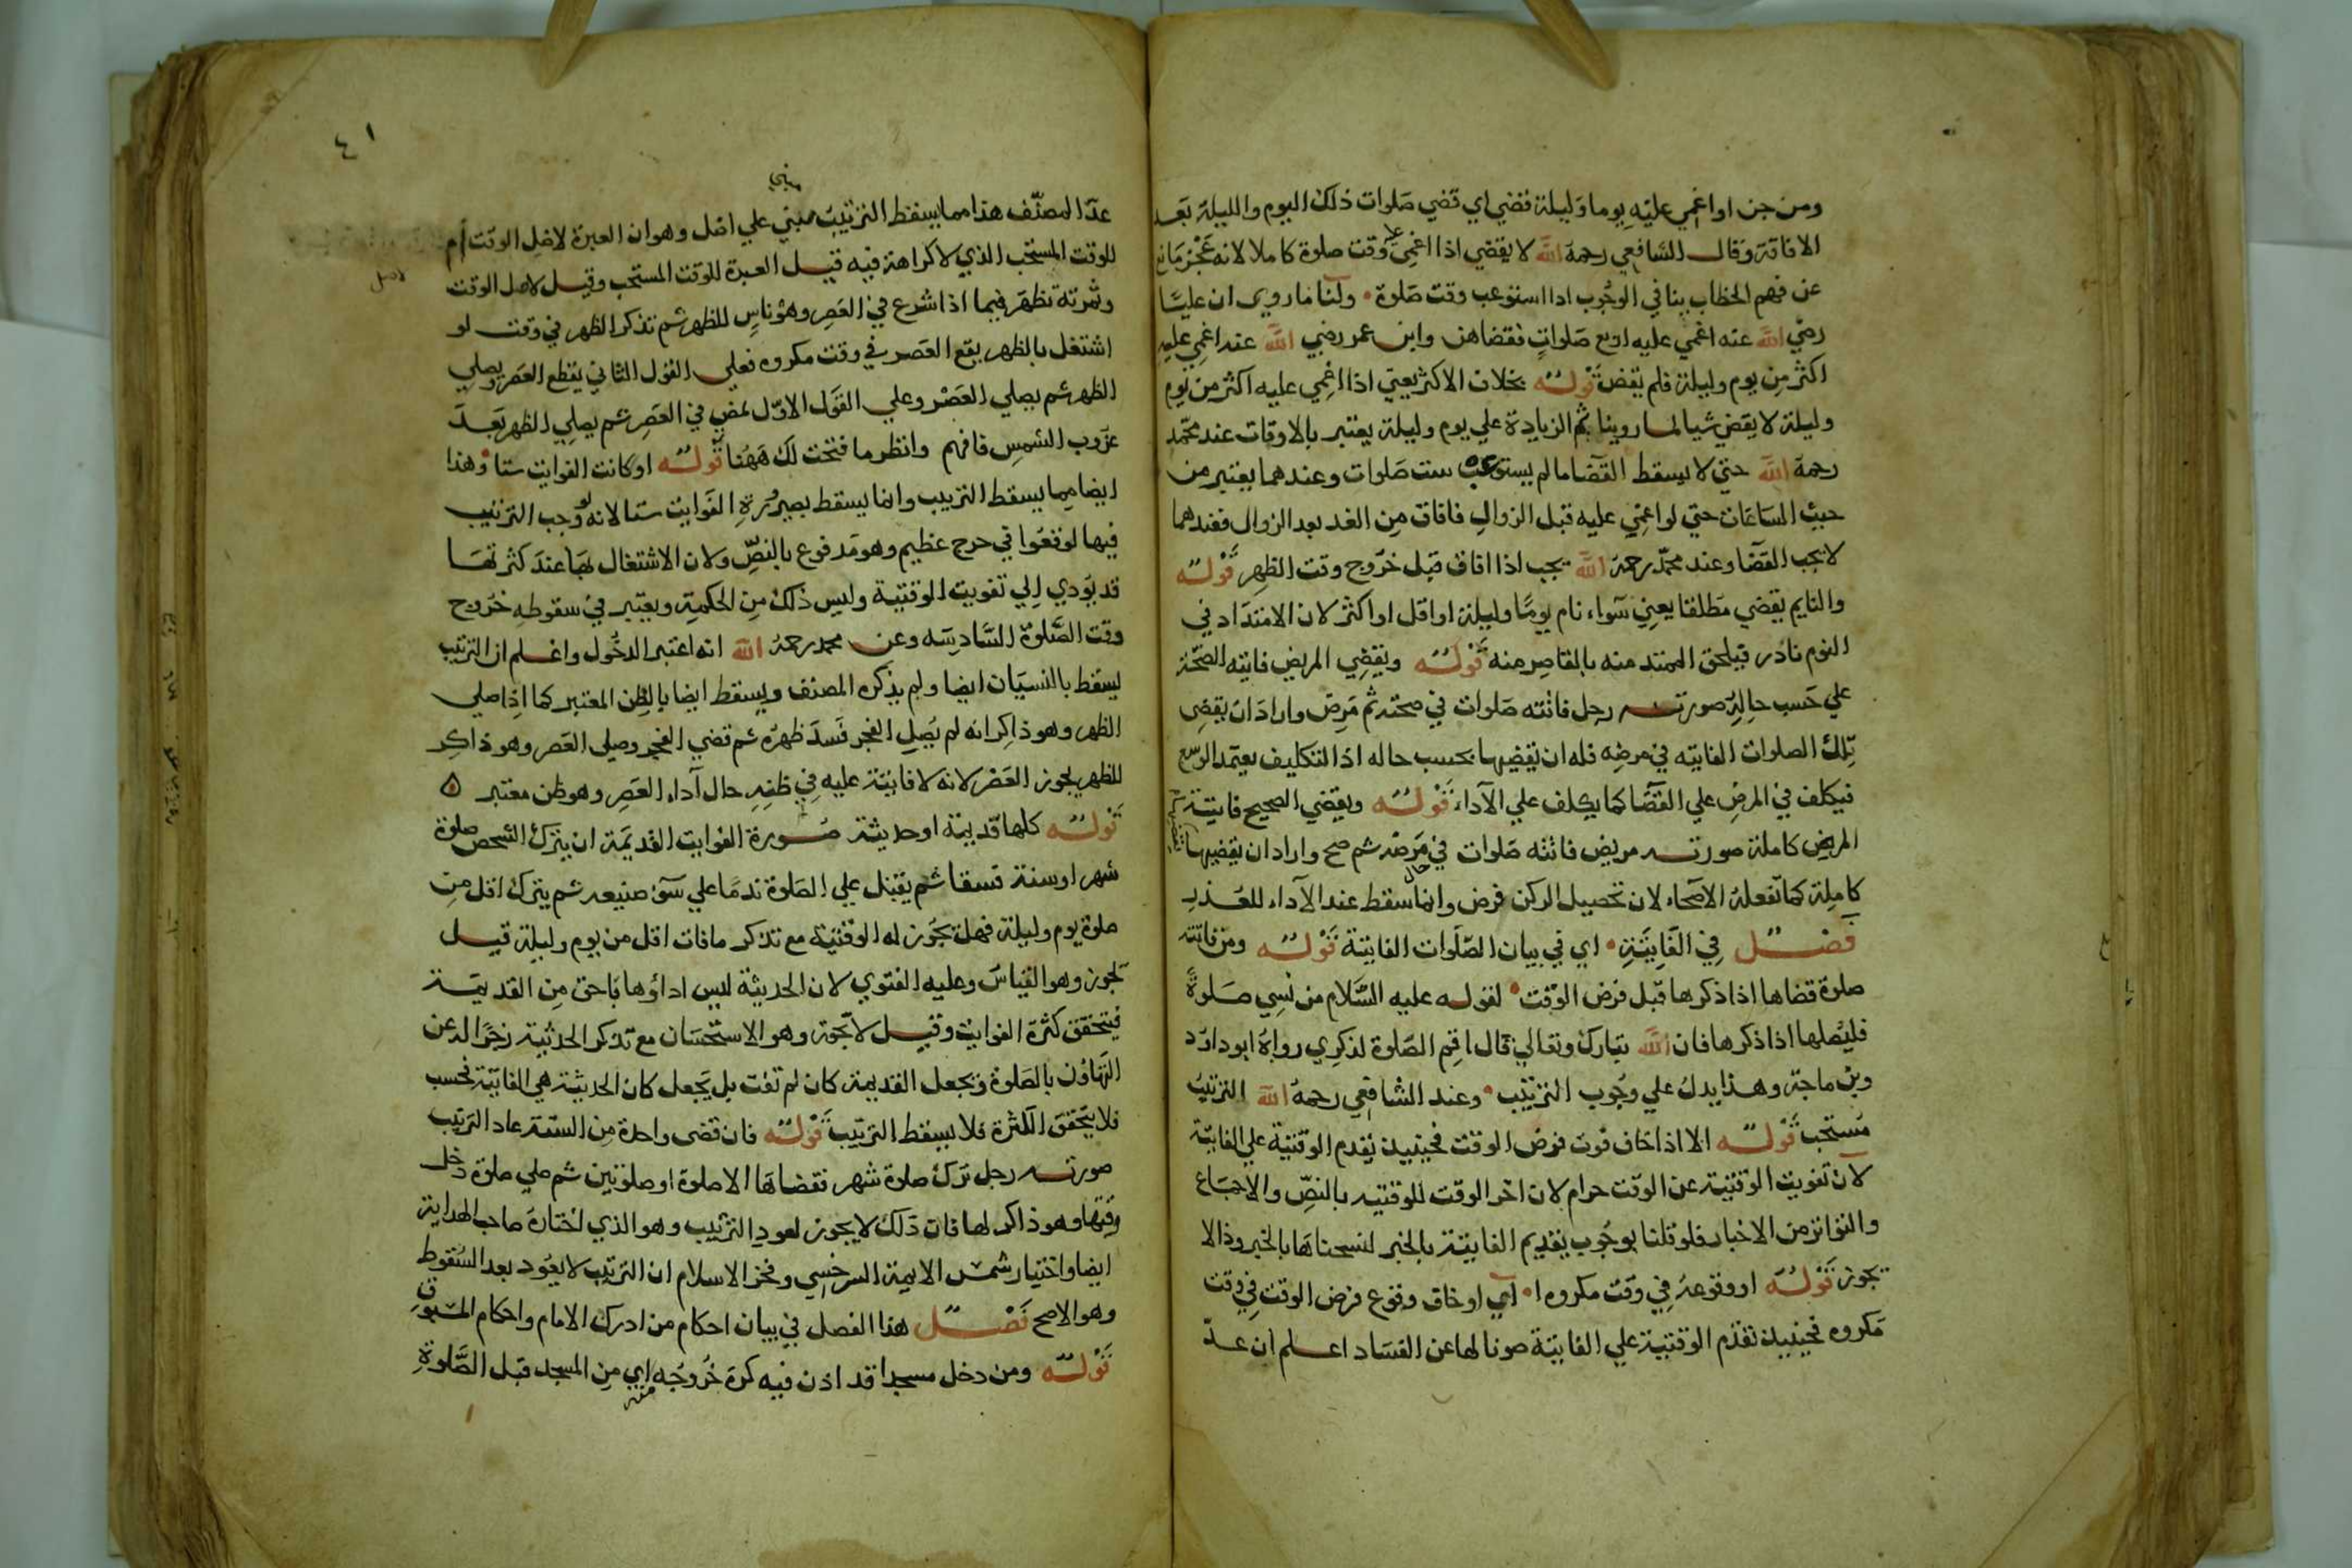 ومن جن او اغمي عليه يوما وليلة قضي اي قضي صلوات ذلك اليوم والليلة بعد
الافاقة وقال الشافعي رحمه الله لا يقضي اذا اغمي عليه وقت صلوة كاملا لانه عجز مانع
عن فهم الخطاب ينافي الوجوب اذا استوعب وقت صلوة ولنا ما روي ان عليا
رضي الله عنه اغمي عليه اربع صلوات فقضاهن وابن عمر رضي الله عنه اغمي عليه
اكثر من يوم وليلة فلم يقض قوله بخلاف الاكثر يعني اذا اغمي عليه اكثر من يوم
وليلة لا يقض شيا لما روينا ثم الزيادة علي يوم وليلة يعتبر بالاوقات عند محمد
رحمه الله حتي لا يسقط القضا ما لم يستوعب ست صلوات وعندهما يعتبر من
حيث الساعات حتي لو اغمي عليه قبل الزوال فافاق من الغد بعد الزوال فعندهما
لا يجب القضا وعند محمد رحمه الله يجب اذا افاق قبل خروج وقت الظهر قوله
والنايم يقضي مطلقا يعني سواء نام يوما وليلة او اقل او اكثر لان الامتداد في
النوم نادر فيلحق الممتد منه بالقاصر منه قوله ويقضي المريض فايته الصحة
علي حسب حاله صورته رجل فاتته صلوات في صحته ثم مرض واراد ان يقضي
تلك الصلوات الفايته في مرضه فله ان يقضيها بحسب حاله اذ التكليف يعتمد الوسع
فيكلف في المرض علي القضا كما يكلف علي الآداء قوله ويقضي الصحيح فايتة
المريض كاملة صورته مريض فاتته صلوات في مرضه ثم صح واراد ان يقضيها
كاملة كما تفعله الاصحاء لان تحصيل الركن فرض وانما سقط عند الآداء للعذر
فصل في الفايتة اي في بيان الصلوات الفايتة قوله ومن فاتته
صلوة قضاها اذا ذكرها قبل فرض الوقت لقوله عليه السلام من نسي صلوة
فليصلها اذا ذكرها فان الله تبارك وتعالي قال اقم الصلوة لذكري رواه ابو داود
وبن ماجة وهذا يدل علي وجوب الترتيب وعند الشافعي رحمه الله الترتيب
مستحب قوله الا اذا خاف فوت فرض الوقت فحينيذ يقدم الوقتية علي الفايتة
لان تفويت الوقتية عن الوقت حرام لان اخر الوقت للوقتيه بالنص والاجماع
والتواتر من الاخبار فلو قلنا بوجوب تقديم الفايتة بالخبر لنسخناها بالخبر وذا لا
يجوز قوله او وقوعه في وقت مكروه اي او خاف وقوع فرض الوقت في وقت
مكروه فحينيذ تقدم الوقتية علي الفايتة صونا لها عن الفساد اعلم ان عد
٤١
عد المصنف هذا مما يسقط الترتيب مبني علي اصل وهو ان العبرة لاصل الوقت ام
للوقت المستحب الذي لا كراهة فيه قيل العبرة للوقت المستحب وقيل لاصل الوقت
اصل
وثمرته تظهر فيما اذا شرع في العصر وهو ناس للظهر ثم تذكر الظهر في وقت لو
اشتغل بالظهر يقع العصر في وقت مكروه فعلي القول الثاني يقطع العصر ويصلي
الظهر ثم يصلي العصر وعلي القول الاول يمض في العصر ثم يصلي الظهر بعد
غروب الشمس فافهم وانظر ما فتحت لك ههنا قوله او كانت الفوايت ستا وهذا
ايضا مما يسقط الترتيب وانما يسقط بصيرورة الفوايت ستا لانه لو وجب الترتيب
فيها لوقعوا في حرج عظيم وهو مدفوع بالنص ولان الاشتغال بها عند كثرتها
قد يودي الي تفويت الوقتية وليس ذلك من الحكمة ويعتبر في سقوطه خروج
وقت الصلوة السادسه وعن محمد رحمه الله انه اعتبر الدخول واعلم ان الترتيب
يسقط بالنسيان ايضا ولم يذكره المصنف ويسقط ايضا بالظن المعتبر كما اذا صلي
الظهر وهو ذاكر انه لم يصل الفجر فسد ظهره ثم قضي الفجر وصلي العصر وهو ذاكر
للظهر يجوز العصر لانه لا فايتة عليه في ظنه حال آداء العصر وهو ظن معتبر ٥
قوله كلها قديمة او حديثة صورة الفوايت القديمة ان يترك الشخص صلوة
شهر او سنة فسقا ثم يقبل علي الصلوة ندما علي سوء صنيعه ثم يترك اقل من
صلوة يوم وليلة فهل تجوز له الوقتية مع تذكر ما فات اقل من يوم وليلة قيل
تجوز وهو القياس وعليه الفتوي لان الحديثة ليس اداؤها باحق من القديمة
فيتحقق كثرة الفوايت وقيل لا تجوز وهو الاستحسان مع تذكر الحديثة زجرا له عن
التهاون بالصلوة وتجعل القديمة كان لم تفت بل يجعل كان الحديثة هي الفايتة فحسب
فلا يتحقق الكثرة فلا يسقط الترتيب قوله فان قضي واحدة من الستة عاد الترتيب
صورته رجل ترك صلوة شهر فقضاها الا صلوة او صلوتين ثم صلي صلوة دخل
وقتها وهو ذاكر لها فان ذلك لا يجوز لعود الترتيب وهو الذي اختاره صاحب الهداية
ايضا واختيار شمس الايمة السرخسي وفخر الاسلام ان الترتيب لا يعود بعد السقوط
وهو الاصح فصل هذا الفصل في بيان احكام من ادرك الامام واحكام المسبوق
قوله ومن دخل مسجدا قد اذن فيه كره خروجه منه اي من المسجد قبل الصلوة